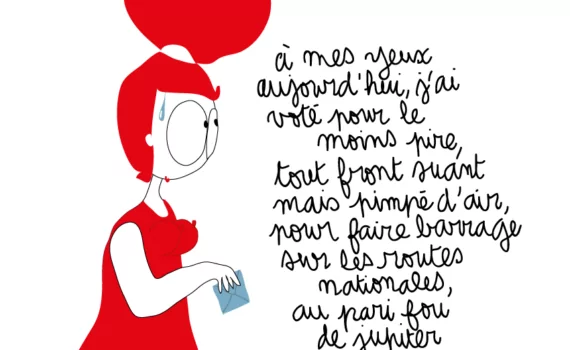 à mes yeux
aujourd'hui, j'ai
voté pour le
moins pire,
tout front suant
mais pimpé d'air,
pour faire barrage
sur les routes
nationales,
au pari fou
de jupiter